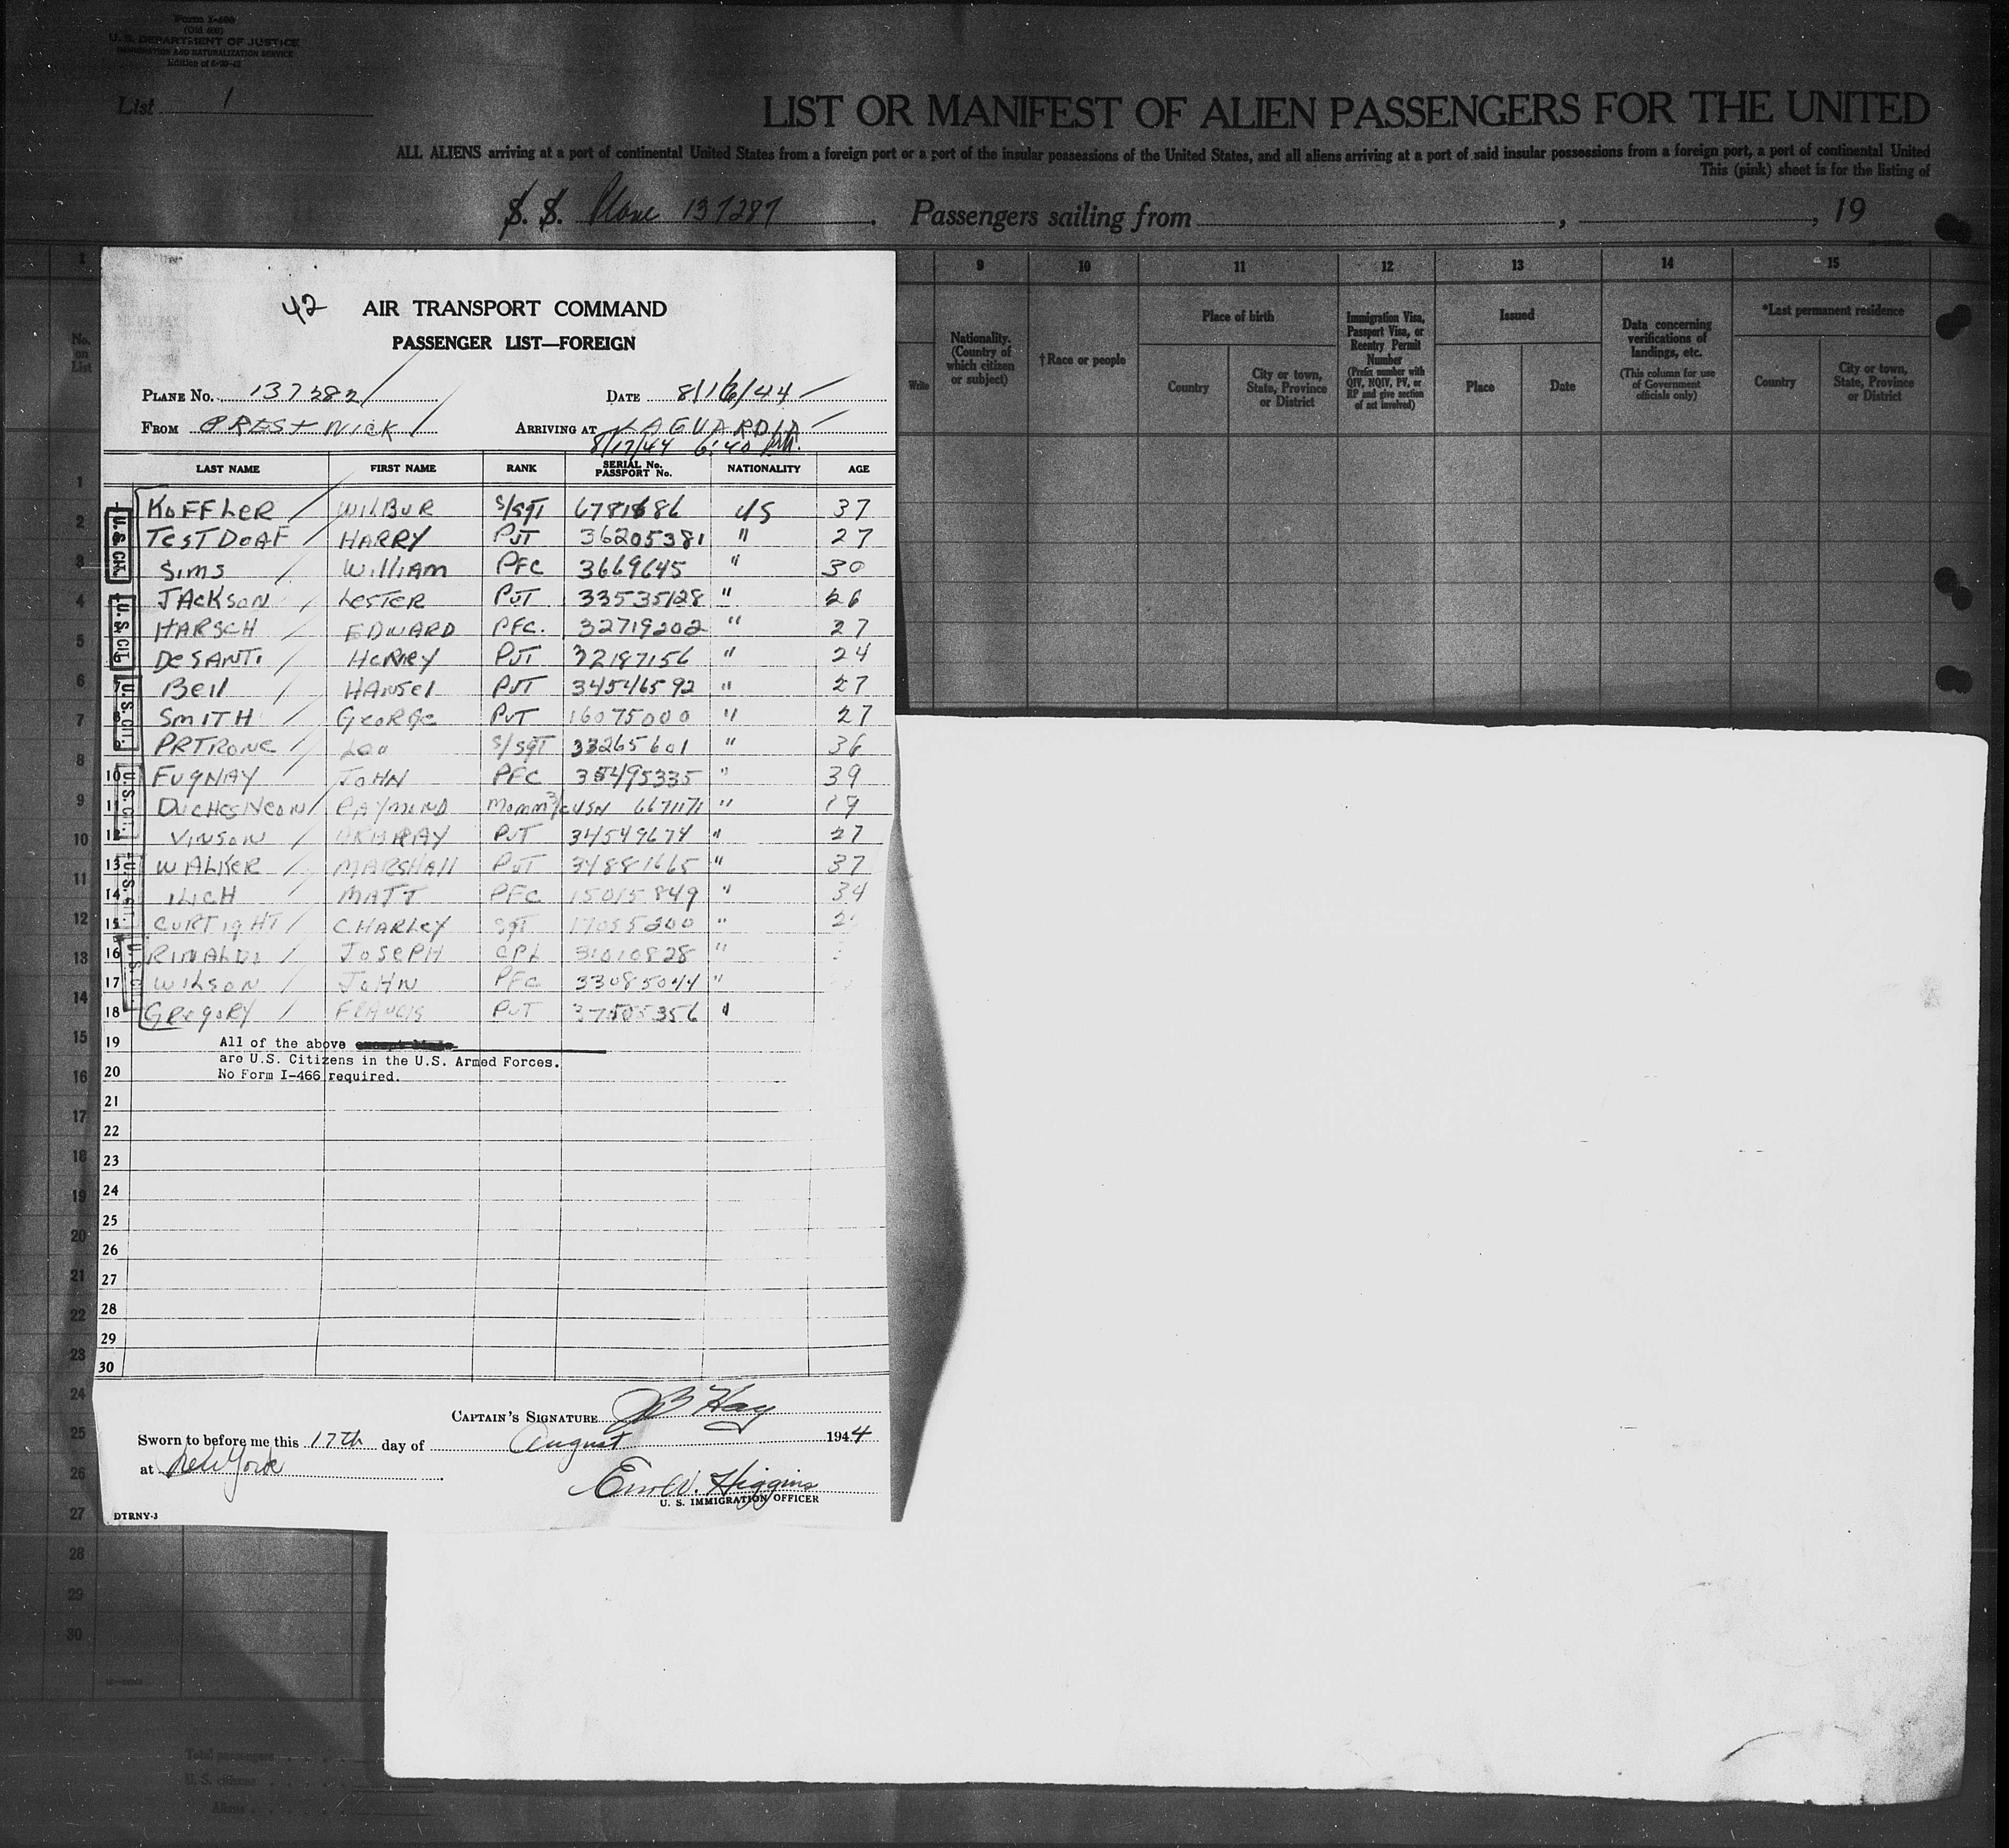 Form I-400
(Old 500)
U. S. DEPARTMENT OF JUSTICE
IMMIGRATION AND NATURALIZATION SERVICE
List 1
LIST OR MANIFEST OF ALIEN PASSENGERS FOR THE UNITED
ALL ALIENS arriving at a port of continental United States from a foreign port or a port of the insular possessions of the United States, and all aliens arriving at a port of said insular possessions from a foreign port, a port of continental United
This (pink) sheet is for the listing of
S. S. Plane 137287 . Passengers sailing from , , 19
9 10 11 12 13 14 15
Write
Nationality. (Country of which citizen or subject)
†Race or people
Place of birth
Country
City or town, State, Province or District
Immigration Visa, Passport Visa, or Reentry Permit Number (Prefix number with QIV, NQIV, PV, or RP and give section of act involved)
Issued
Place
Date
Data concerning verifications of landings, etc.
(This column for use of Government officials only)
*Last permanent residence
Country
City or town, State, Province or District
No. on List
42 AIR TRANSPORT COMMAND
PASSENGER LIST—FOREIGN
PLANE NO. 137282 DATE 8/16/44
FROM PRESTWICK ARRIVING AT LAGUARDIA
8/17/44 6:40 PM.
LAST NAME FIRST NAME RANK SERIAL No. PASSPORT No. NATIONALITY AGE
KOFFLER WILBUR S/SGT 6781686 US 37
TESTDOAF HARRY PVT 36205381 " 27
SIMS WILLIAM PFC 3669645 " 30
JACKSON LESTER PVT 33535128 " 26
HARSCH EDWARD PFC. 32719202 " 27
DeSANTI HENRY PVT 32187156 " 24
Bell HANSel PVT 34546592 " 27
SMITH GEORGE PVT 16075000 " 27
PRTRONE Leo S/SGT 33265601 " 36
10 FUGNAY JOHN PFC 35495335 " 39
11 DUCHESNEON RAYMOND MoMM3/c USN 6671171 " 19
12 VINSON PVT 34549674 " 27
13 WALKER MARSHAll PVT 34881665 " 37
14 ILICH MATT PFC 15015849 " 34
15 CURTIGHT CHARLEY SGT 17055200 "
16 RINALDI JOSEPH CPL 31010828 "
17 WILSON JOHN PFC 33085044 "
18 GREGORY FRANCIS PVT 37505356 "
19 All of the above
are U.S. Citizens in the U.S. Armed Forces.
20 No Form I-466 required.
21
22
23
24
25
26
27
28
29
30
U.S. CIT.
U.S. CIT.
U.S. CIT.
U.S. CIT.
U.S. CIT.
U.S. CIT.
CAPTAIN'S SIGNATURE JB Kay
Sworn to before me this 17th day of August 1944
at New York
Higgins
U. S. IMMIGRATION OFFICER
DTRNY-3
1
2
3
4
5
6
7
8
9
10
11
12
13
14
15
16
17
18
19
20
21
22
23
24
25
26
27
28
29
30
Total passengers
U. S. citizens
Aliens